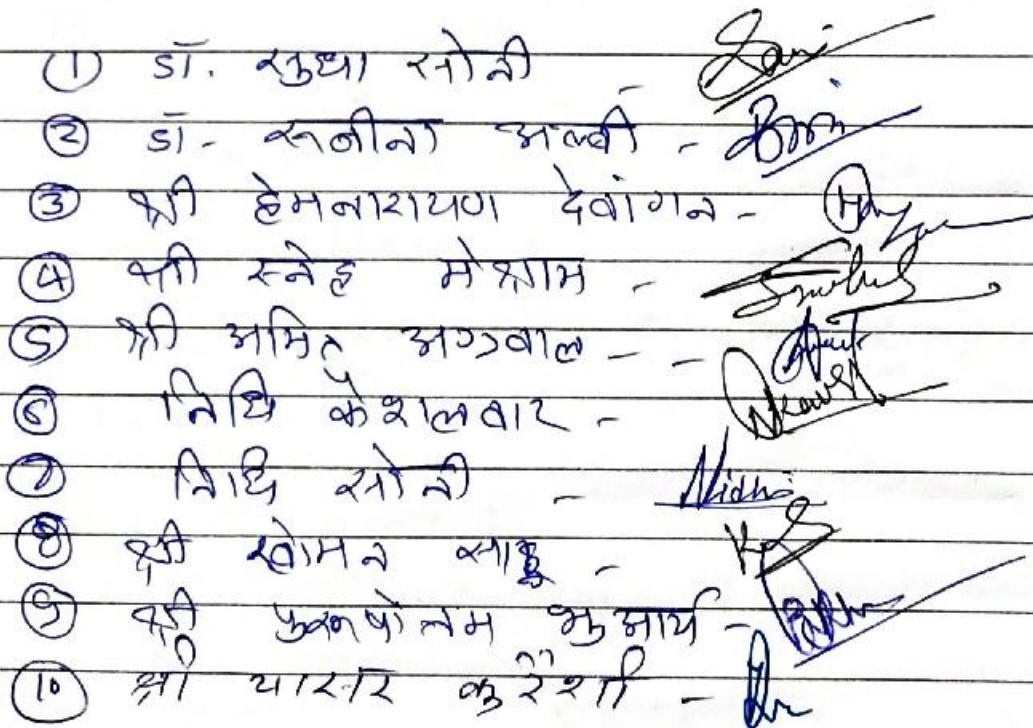 ① डॉ. सुधा सोनी - Soni
② डॉ. रूबीना अल्वी -
③ श्री हेमनारायण देवांगन -
④ श्री स्नेह मेश्राम -
⑤ श्री अमित अग्रवाल - -
⑥ निधि कौशलवार -
⑦ निधि सोनी - Nidhi
⑧ श्री खोमन साहू -
⑨ श्री पुरूषोत्तम भुआर्य -
⑩ श्री यासर कुरैशी -